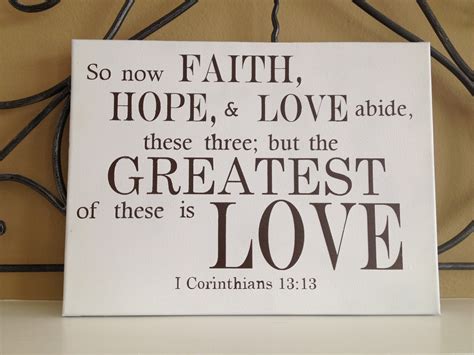 So now FAITH,
HOPE, & LOVE abide,
these three; but the
GREATEST
of these is LOVE
I Corinthians 13:13